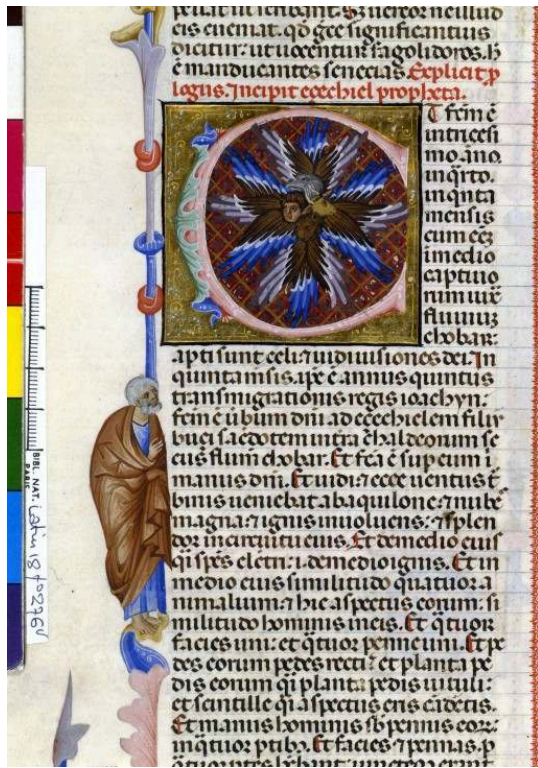 eis eueniat. qd gce significantius
dicitur: ut uocentur sagolidoros. h̄
ē manducantes senecias. Explicit p
logus. Incipit ezechiel propheta.
T fcm ē
in tricesi
mo āno.
in q̄rto.
in q̄nta
mensis
cum eēz
i medio
captiuo
rum iux̄
fluuiuz
chobar:
apti sunt celi: ⁊ uidi uisiones dei. In
quinta m̄sis. ip̄e ē annus quintus
transmigrationis regis ioachyn:
fcm ē ūbum dn̄i. ad ecechielem filiy
buci sacdotem in tr̄a chaldeorum se
cus flum̄ chobar. Et fcā ē sup eum i
manus dn̄i. Et uidi: ⁊ ecce uentus t̄
binis ueniebat ab aquilone: ⁊ nubē
magna: ⁊ ignis inuoluens: ⁊ splen
dor in circuitu eius. Et de medio eius
q̄i spēs elctri: i. de medio ignis. Et in
medio eius similitudo quatuor a
nimalium: ⁊ hic aspectus eorum: si
militudo hominis in eis. Et q̄tuor
facies uni: et q̄tuor penne uni. Et pe
des eorum pedes recti: et planta pe
dis eorum q̄i planta pedis uituli:
et scintille q̄i aspectus eris cādētis.
Et manus hominis sb pennis eoꝝ:
in q̄tuor ptibꝫ. Et facies ⁊ pennas. p
BIBL. NAT. PARIS
Latin 18 fo 276v